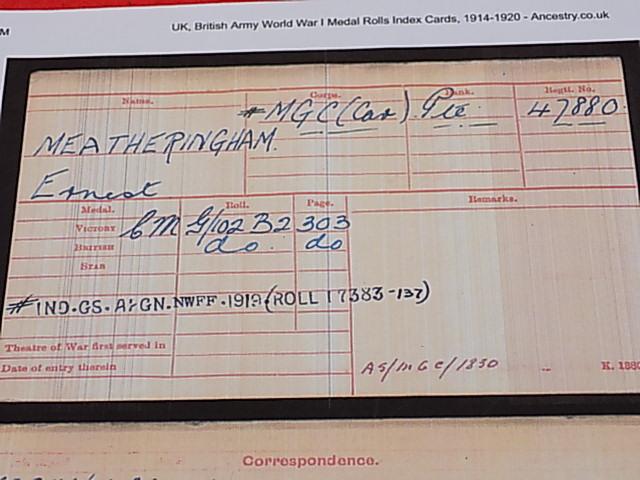 M
UK, British Army World War I Medal Rolls Index Cards, 1914-1920 - Ancestry.co.uk
Name. Corps. Rank. Regtl. No.
# MGC (Cav) Pte 47880
MEATHERINGHAM.
Ernest
Medal. Roll. Page. Remarks.
VICTORY CM G/102 B2 303
BRITISH do. do
STAR
# IND.GS.AFGN.NWFF.1919 (ROLL 17383-137)
Theatre of War first served in
Date of entry therein AS/MGC/1830 K. 1880
Correspondence.